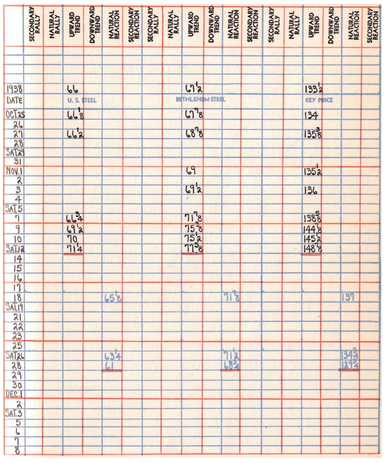 SECONDARY RALLY NATURAL RALLY UPWARD TREND DOWNWARD TREND NATURAL REACTION SECONDARY REACTION SECONDARY RALLY NATURAL RALLY UPWARD TREND DOWNWARD TREND NATURAL REACTION SECONDARY REACTION SECONDARY RALLY NATURAL RALLY UPWARD TREND DOWNWARD TREND NATURAL REACTION SECONDARY REACTION
1938 66 67½ 133½
DATE U.S. STEEL BETHLEHEM STEEL KEY PRICE
OCT.25 66⅛ 67⅞ 134
26
27 66½ 68⅞ 135⅜
28
SAT.29
31
NOV.1 69 135½
2
3 69½ 136
4
SAT.5
7 66¾ 71⅞ 138⅝
9 69½ 75⅜ 144⅞
10 70 75½ 145½
SAT.12 71¼ 77⅝ 148⅞
14
15
16
17
18 65⅛ 71⅞ 137
SAT.19
21
22
23
25
SAT.26 63¼ 71½ 134¾
28 61 68¾ 129¾
29
30
DEC.1
2
SAT.3
5
6
7
8